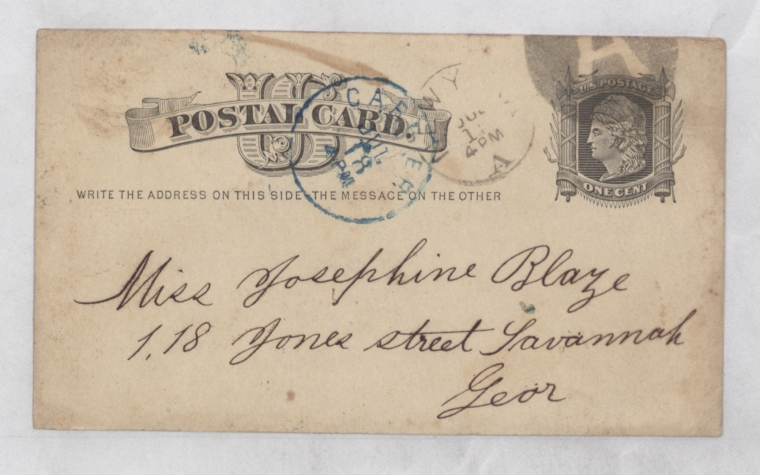 U.S. POSTAGE
POSTAL CARD.
ONE CENT
WRITE THE ADDRESS ON THIS SIDE-THE MESSAGE ON THE OTHER
NY
4 PM
A
CARRIER
JUL
18
4 PM
Miss Josephine Blaze
1,18 Jones street Savannah
Geor